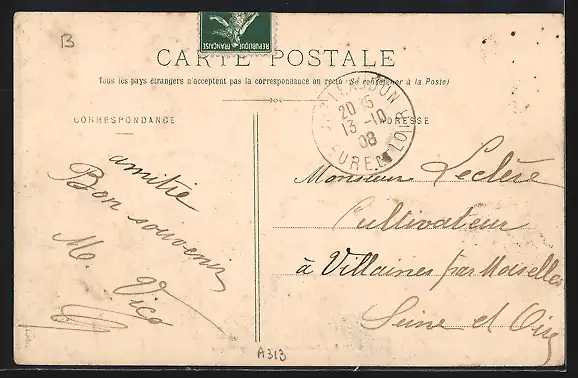 B
REPUBLIQUE FRANÇAISE
CARTE POSTALE
Tous les pays étrangers n'acceptent pas la correspondance au recto (Se renseigner à la Poste)
CORRESPONDANCE
ADRESSE
20 15
13 -10
08
EURE-ET-LOIR
amitié
Bon souvenir
M. Vico
Monsieur Leclère
Cultivateur
à Villaines par Moiselles
Seine et Oise
A313